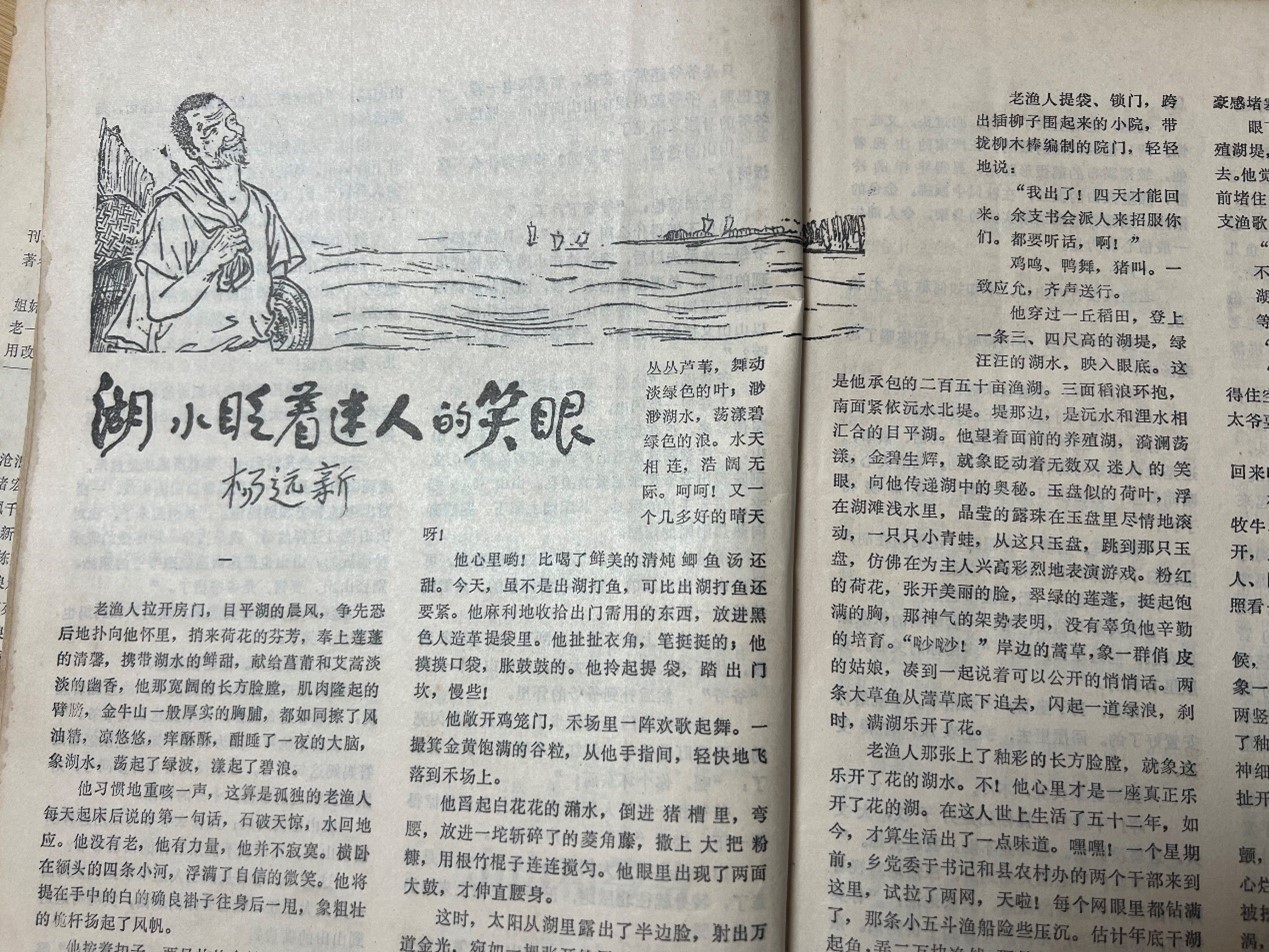 湖水眨着迷人的笑眼
杨远新
一
老渔人拉开房门，目平湖的晨风，争先恐
后地扑向他怀里，捎来荷花的芬芳，奉上莲蓬
的清馨，携带湖水的鲜甜，献给菖莆和艾蒿淡
淡的幽香，他那宽阔的长方脸膛，肌肉隆起的
臂膀，金牛山一般厚实的胸脯，都如同擦了风
油精，凉悠悠，痒酥酥，酣睡了一夜的大脑，
象湖水，荡起了绿波，漾起了碧浪。
他习惯地重咳一声，这算是孤独的老渔人
每天起床后说的第一句话，石破天惊，水回地
应。他没有老，他有力量，他并不寂寞。横卧
在额头的四条小河，浮满了自信的微笑。他将
提在手中的白的确良褂子往身后一甩，象粗壮
的桅杆扬起了风帆。
丛丛芦苇，舞动
淡绿色的叶；渺
渺湖水，荡漾碧
绿色的浪。水天
相连，浩阔无
际。呵呵！又一
个几多好的晴天
呀！
他心里哟！比喝了鲜美的清炖鲫鱼汤还
甜。今天，虽不是出湖打鱼，可比出湖打鱼还
要紧。他麻利地收拾出门需用的东西，放进黑
色人造革提袋里。他扯扯衣角，笔挺挺的；他
摸摸口袋，胀鼓鼓的。他拎起提袋，踏出门
坎，慢些！
他敞开鸡笼门，禾场里一阵欢歌起舞。一
撮箕金黄饱满的谷粒，从他手指间，轻快地飞
落到禾场上。
他舀起白花花的潲水，倒进猪槽里，弯
腰，放进一坨斩碎了的菱角藤，撒上大把粉
糠，用根竹棍子连连搅匀。他眼里出现了两面
大鼓，才伸直腰身。
这时，太阳从湖里露出了半边脸，射出万
老渔人提袋、锁门，跨
出插柳子围起来的小院，带
拢柳木棒编制的院门，轻轻
地说：
“我出了！四天才能回
来。余支书会派人来招服你
们。都要听话，啊！”
鸡鸣、鸭舞，猪叫。一
致应允，齐声送行。
他穿过一丘稻田，登上
一条三、四尺高的湖堤，绿
汪汪的湖水，映入眼底。这
是他承包的二百五十亩渔湖。三面稻浪环抱，
南面紧依沅水北堤。堤那边，是沅水和浬水相
汇合的目平湖。他望着面前的养殖湖，漪澜荡
漾，金碧生辉，就象眨动着无数双迷人的笑
眼，向他传递湖中的奥秘。玉盘似的荷叶，浮
在湖滩浅水里，晶莹的露珠在玉盘里尽情地滚
动，一只只小青蛙，从这只玉盘，跳到那只玉
盘，仿佛在为主人兴高彩烈地表演游戏。粉红
的荷花，张开美丽的脸，翠绿的莲蓬，挺起饱
满的胸，那神气的架势表明，没有辜负他辛勤
的培育。“吵吵！”岸边的蒿草，象一群俏皮
的姑娘，凑到一起说着可以公开的悄悄话。两
条大草鱼从蒿草底下追去，闪起一道绿浪，刹
时，满湖乐开了花。
老渔人那张上了釉彩的长方脸膛，就象这
乐开了花的湖水。不！他心里才是一座真正乐
开了花的湖。在这人世上生活了五十二年，如
今，才算生活出了一点味道。嘿嘿！一个星期
前，乡党委干书记和县农村办的两个干部来到
这里，试拉了两网，天啦！每个网眼里都钻满
了，那条小五斗渔船险些压沉。估计年底干湖
豪感堵塞
眼下
殖湖堤，
去。他觉
前堵住
支渔歌
得住空
太爷
回来
牧牛
开，
人、
照看
候，
象一
两竖
了釉
神细
扯开
颤，
心烂
被
涡，
刊
著
姐妹
老一
用改